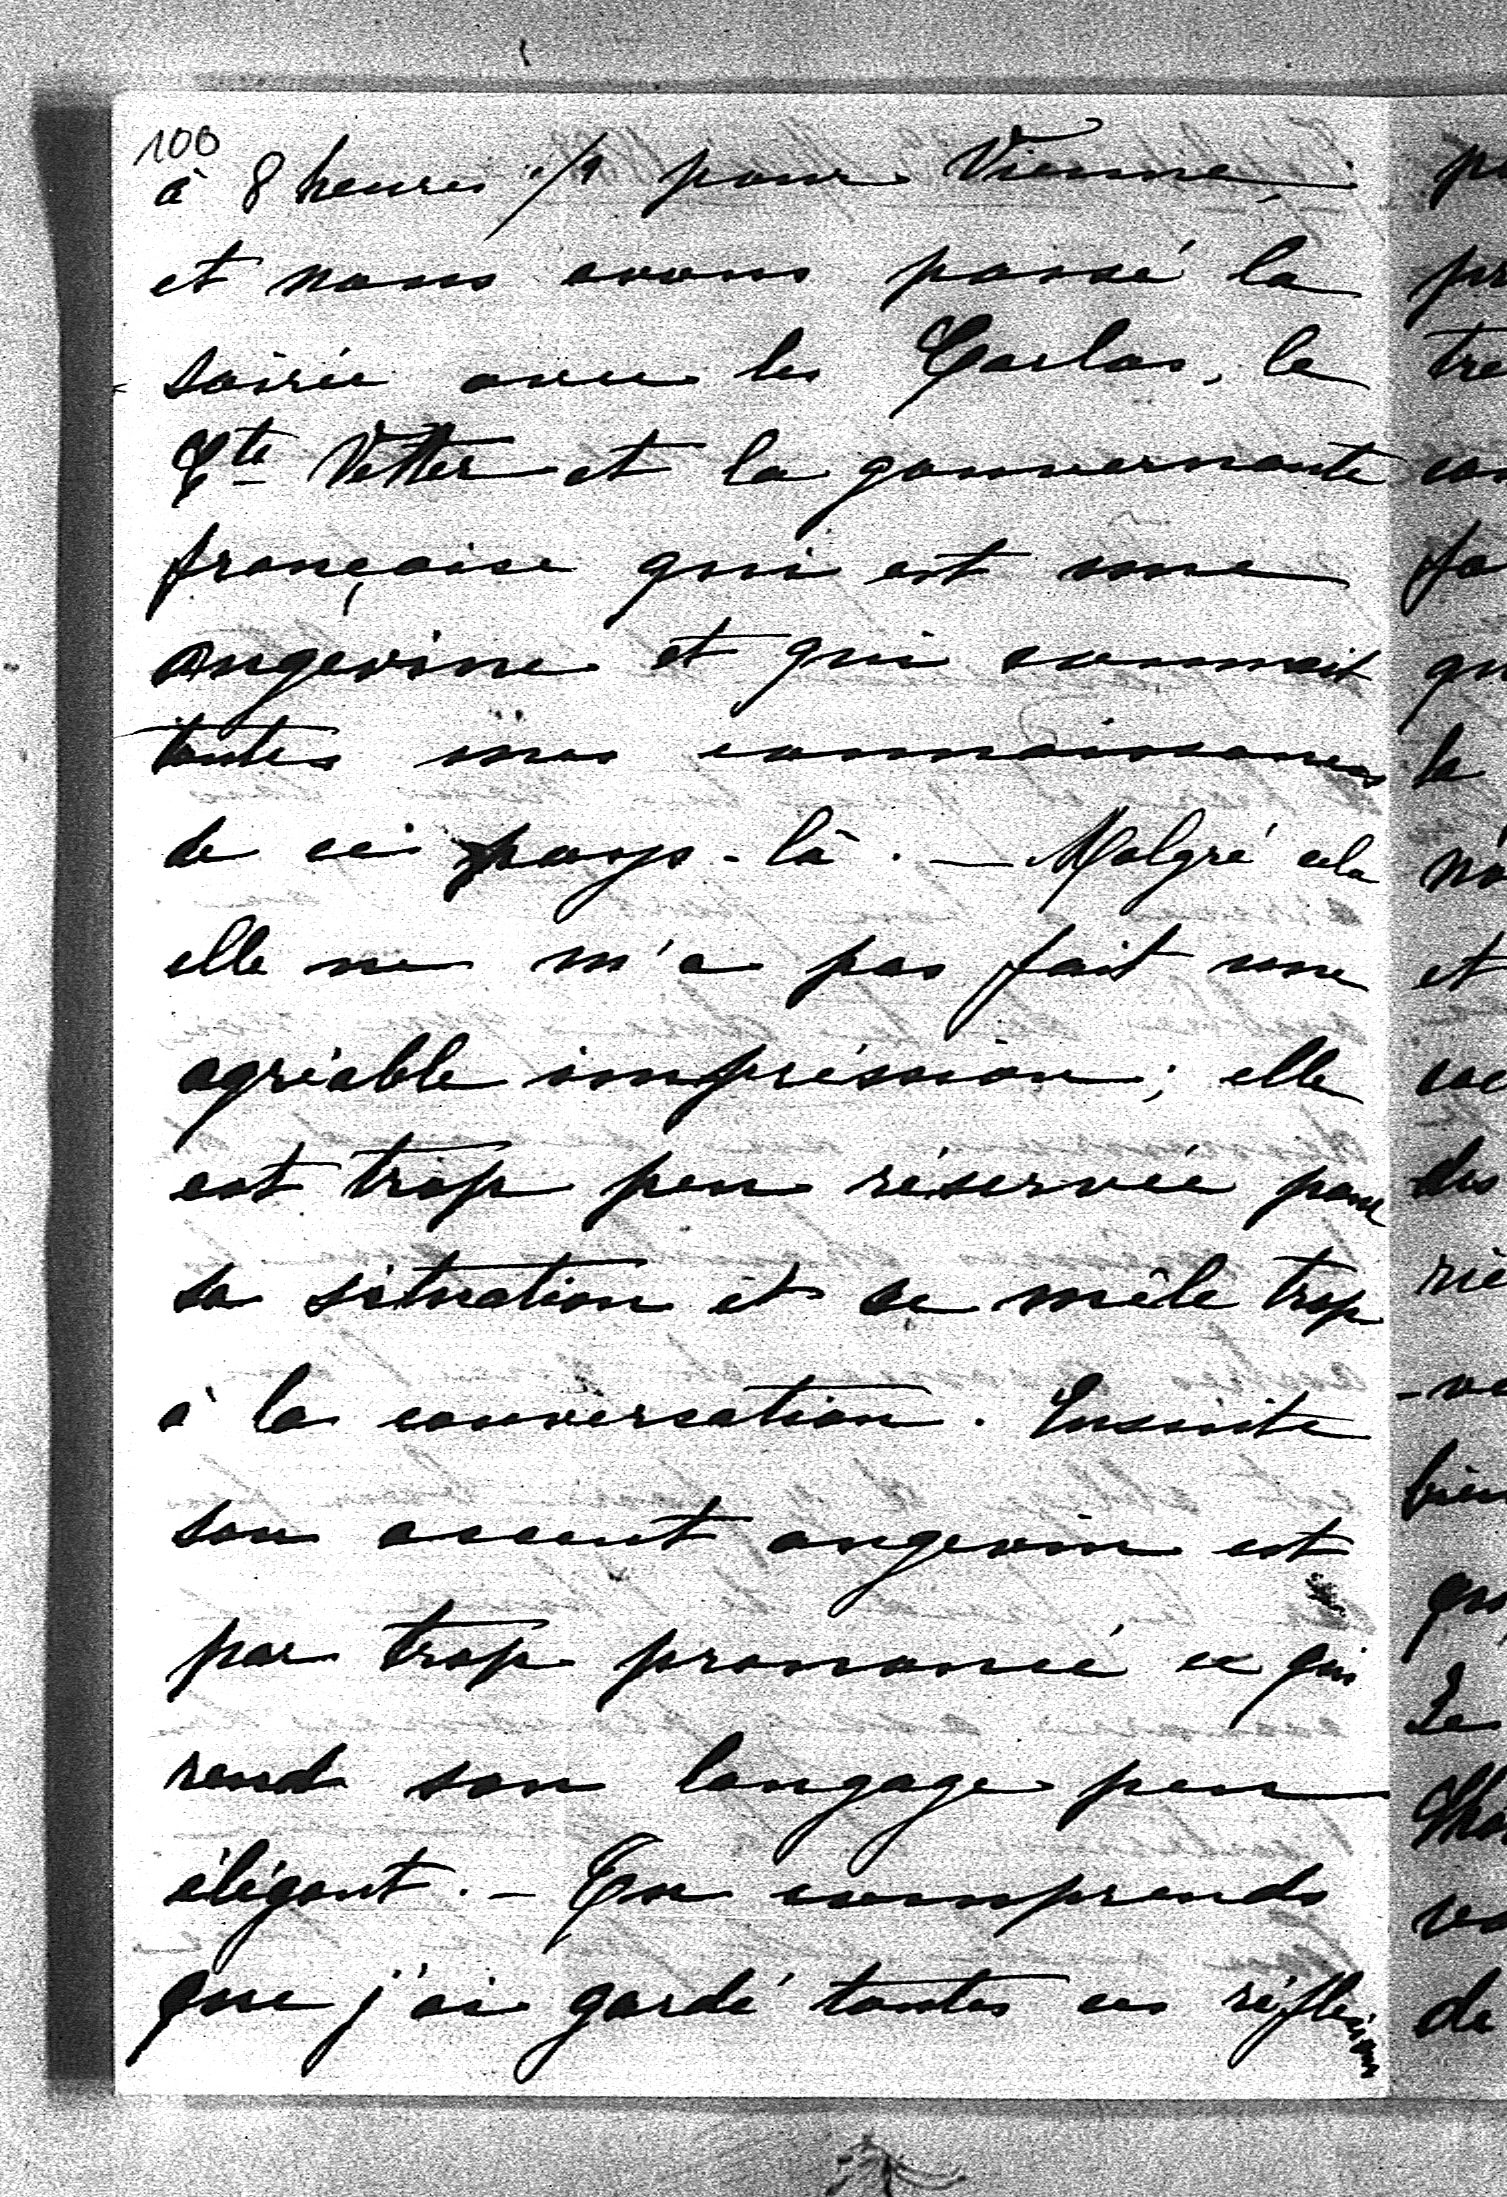 100
à 8 heures 1/2 pour Vienne,
et nous avons passé la
soirée avec les Carlos, le
Cte Vetter et la gouvernante
française qui est une
angevine et qui connait
toutes mes connaissances
de ce pays-là. — Malgré cela
elle ne m'a pas fait une
agréable impréssion ; elle
est trop peu réservée pour
sa situation et se mêle trop
à la conversation. Ensuite
son accent angevin est
par trop prononcé ce qui
rend son langage peu
élégant. — Tu comprends
que j'ai gardé toutes ces réflexions